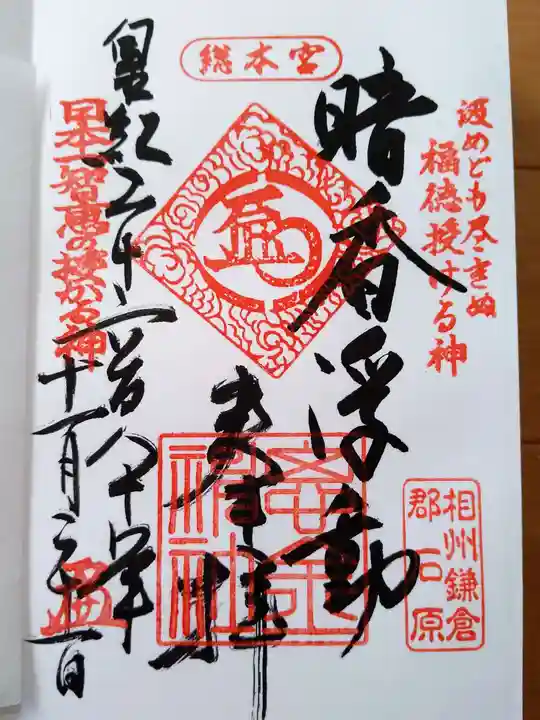 総本宮
汲めども尽きぬ
福徳授ける神
相州鎌倉
郡石原
暗香浮動
奉拝
皇紀二千六百八十年
日本一智恵の授かる神
十一月